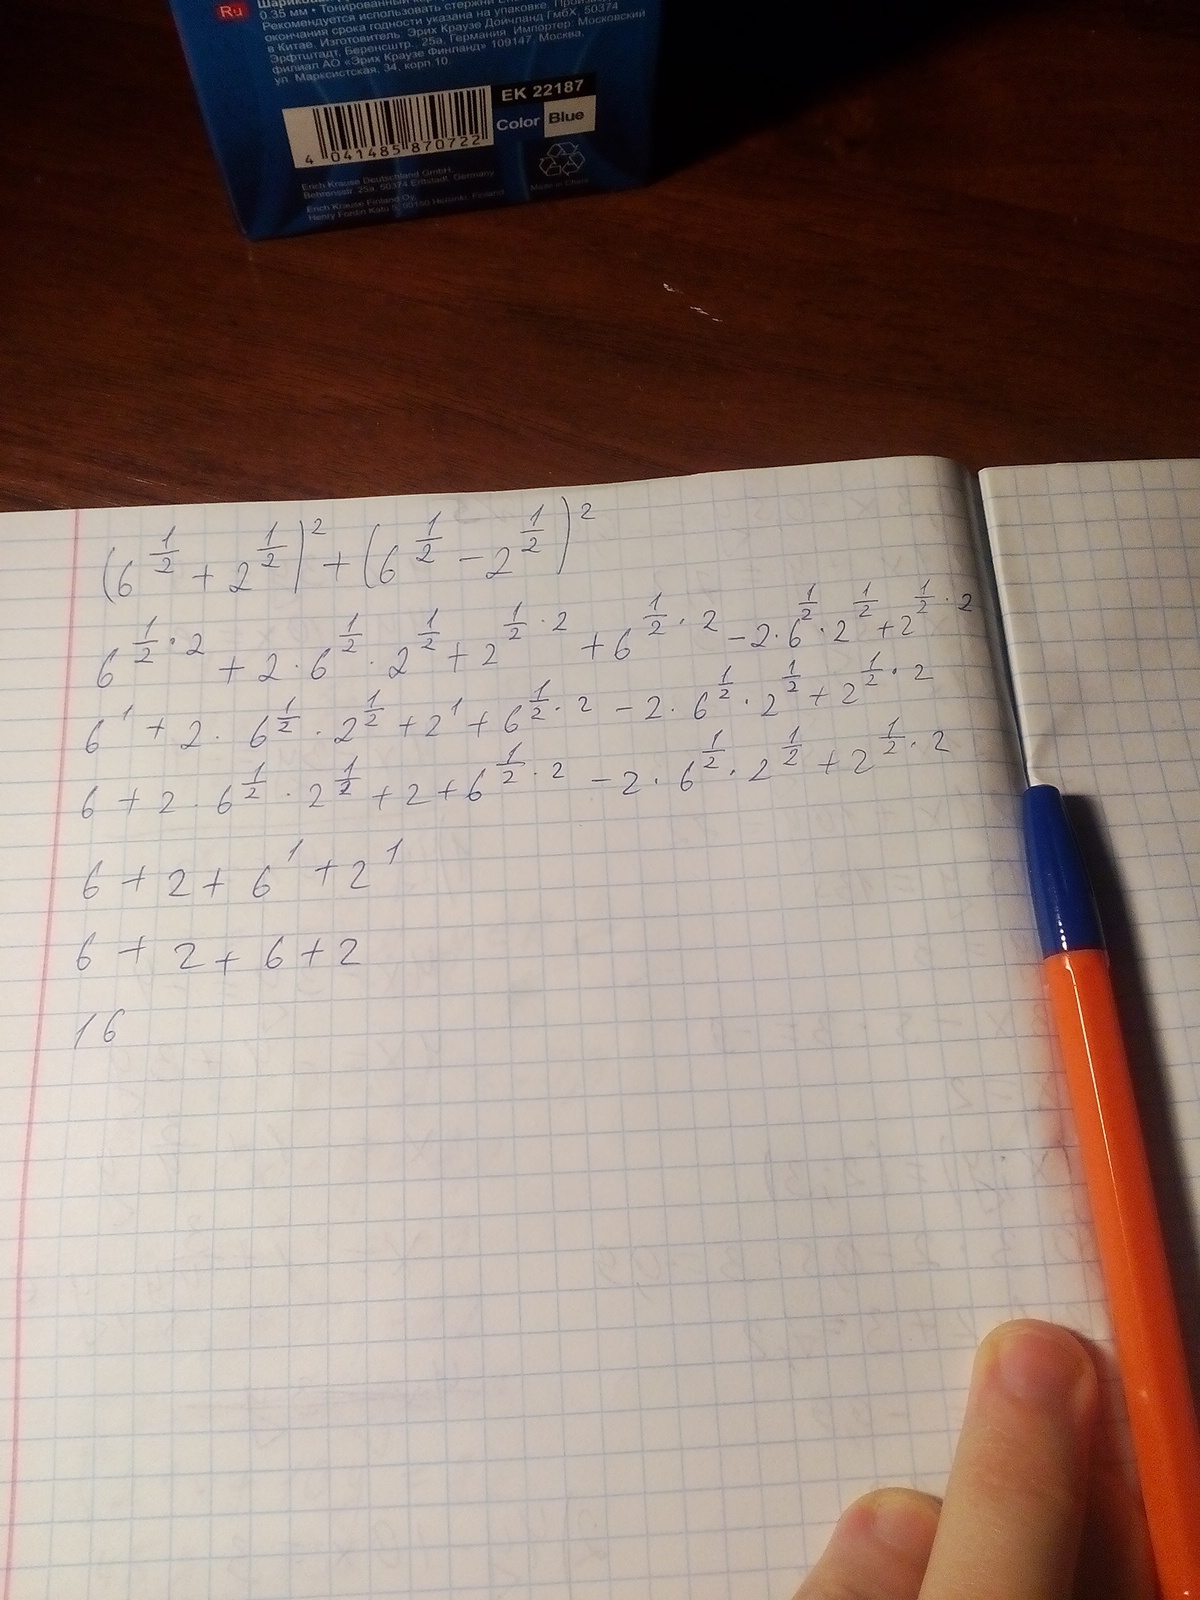 Ru
0.35 мм • Тонированный
Рекомендуется использовать стержни
окончания срока годности указана на упаковке.
в Китае. Изготовитель: Эрих Краузе Дойчланд ГмбХ, 50374
Эрфтштадт, Беренсштр., 25а, Германия. Импортер: Московский
филиал АО «Эрих Краузе Финланд» 109147, Москва,
ул. Марксистская, 34, корп.10.
EK 22187
Color Blue
4 041485 870722
Made in China
Erich Krause Deutschland GmbH,
Behrensstr. 25a, 50374 Erftstadt, Germany
Erich Krause Finland Oy,
Henry Fordin Katu 5, 00150 Helsinki, Finland
(6^{1/2} + 2^{1/2})^2 + (6^{1/2} − 2^{1/2})^2
6^{1/2 · 2} + 2 · 6^{1/2} · 2^{1/2} + 2^{1/2 · 2} + 6^{1/2 · 2} − 2 · 6^{1/2} · 2^{1/2} + 2^{1/2 · 2}
6^1 + 2 · 6^{1/2} · 2^{1/2} + 2^1 + 6^{1/2 · 2} − 2 · 6^{1/2} · 2^{1/2} + 2^{1/2 · 2}
6 + 2 · 6^{1/2} · 2^{1/2} + 2 + 6^{1/2 · 2} − 2 · 6^{1/2} · 2^{1/2} + 2^{1/2 · 2}
6 + 2 + 6^1 + 2^1
6 + 2 + 6 + 2
16